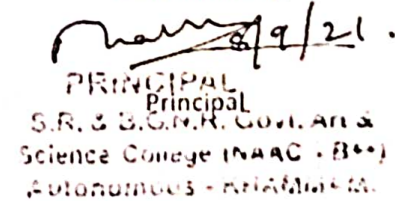 8/9/21.
PRINCIPAL
Principal
S.R. & B.G.N.R. Govt. Art &
Science College (NAAC - B++)
Autonomous - KHAMMAM.